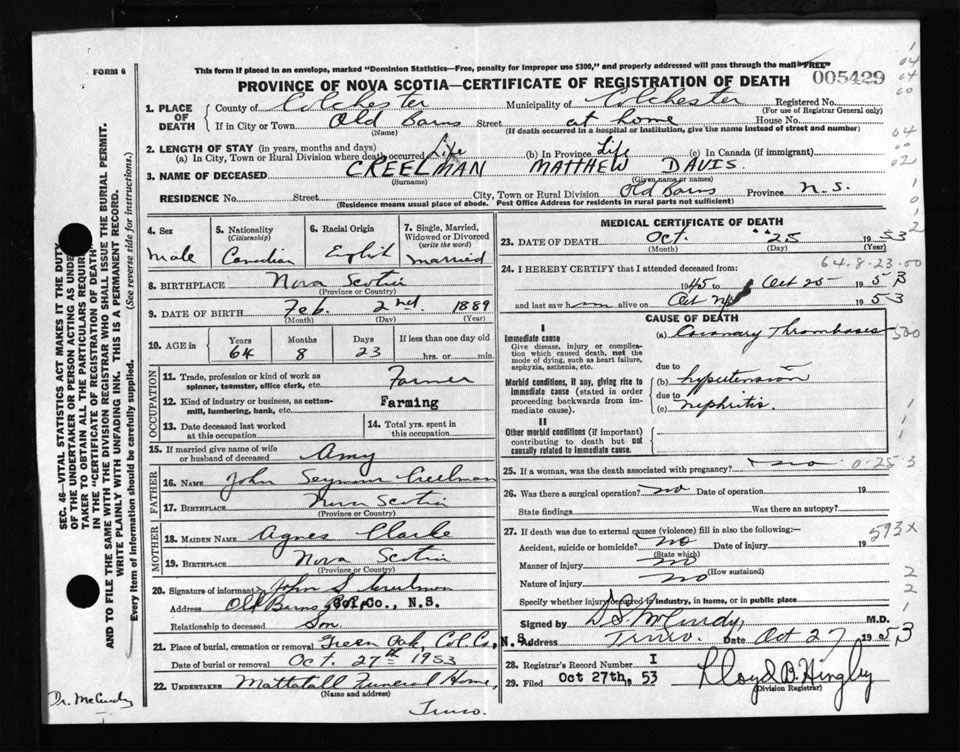 FORM 6
This form if placed in an envelope, marked "Dominion Statistics—Free, penalty for improper use $300," and properly addressed will pass through the mail "FREE"
PROVINCE OF NOVA SCOTIA—CERTIFICATE OF REGISTRATION OF DEATH
005429
1. PLACE OF DEATH
County of Colchester Municipality of Colchester Registered No.
(For use of Registrar General only)
If in City or Town Old Barns Street at home House No.
(Name) (If death occurred in a hospital or institution, give the name instead of street and number)
2. LENGTH OF STAY (in years, months and days)
(a) In City, Town or Rural Division where death occurred Life (b) In Province Life (c) In Canada (if immigrant)
3. NAME OF DECEASED CREELMAN MATTHEW DAVIS
(Surname) (Given name or names)
RESIDENCE No. Street City, Town or Rural Division Old Barns Province N.S.
(Residence means usual place of abode. Post Office Address for residents in rural parts not sufficient)
4. Sex Male
5. Nationality (Citizenship) Canadian
6. Racial Origin English
7. Single, Married, Widowed or Divorced (write the word) Married
8. BIRTHPLACE Nova Scotia
(Province or Country)
9. DATE OF BIRTH Feb. 2nd. 1889
(Month) (Day) (Year)
10. AGE in Years Months Days If less than one day old
64 8 23 hrs. or min.
OCCUPATION
11. Trade, profession or kind of work as spinner, teamster, office clerk, etc. Farmer
12. Kind of industry or business, as cotton-mill, lumbering, bank, etc. Farming
13. Date deceased last worked at this occupation
14. Total yrs. spent in this occupation
15. If married give name of wife or husband of deceased Amy
FATHER
16. NAME John Seymour Creelman
17. BIRTHPLACE Nova Scotia
(Province or Country)
MOTHER
18. MAIDEN NAME Agnes Clarke
19. BIRTHPLACE Nova Scotia
(Province or Country)
20. Signature of informant John S. Creelman
Address Old Barns Col. Co., N.S.
Relationship to deceased Son
21. Place of burial, cremation or removal Green Oak, Col. Co, N.S.
Date of burial or removal Oct. 27th 1953
22. UNDERTAKER Mattatall Funeral Home,
(Name and address)
Truro.
MEDICAL CERTIFICATE OF DEATH
23. DATE OF DEATH Oct. 25 1953
(Month) (Day) (Year)
64.8.23.00
24. I HEREBY CERTIFY that I attended deceased from:
1945 to Oct 25 1953
and last saw him alive on Oct 1953
CAUSE OF DEATH
I
Immediate cause
Give disease, injury or complication which caused death, not the mode of dying, such as heart failure, asphyxia, asthenia, etc.
(a) Coronary Thromboses
500
due to
Morbid conditions, if any, giving rise to immediate cause (stated in order proceeding backwards from immediate cause).
(b) hypertension
due to
(c) nephritis.
II
Other morbid conditions (if important) contributing to death but not causally related to immediate cause.
25. If a woman, was the death associated with pregnancy? no 0-253
26. Was there a surgical operation? no Date of operation 19
State findings Was there an autopsy?
27. If death was due to external causes (violence) fill in also the following:-
Accident, suicide or homicide? no Date of injury 19
(State which)
593X
Manner of injury no
(How sustained)
Nature of injury no
Specify whether injury occurred in industry, in home, or in public place
Signed by D.S. McCurdy, M.D.
Address Truro. Date Oct 27 1953
28. Registrar's Record Number I
29. Filed Oct 27th, 53 Lloyd B. Hingley
(Division Registrar)
SEC. 46—VITAL STATISTICS ACT MAKES IT THE DUTY
OF THE UNDERTAKER OR PERSON ACTING AS
TAKER TO OBTAIN ALL THE PARTICULARS
IN THE "CERTIFICATE OF REGISTRATION OF DEATH"
AND TO FILE THE SAME WITH THE DIVISION REGISTRAR WHO SHALL ISSUE THE BURIAL PERMIT.
WRITE PLAINLY WITH UNFADING INK. THIS IS A PERMANENT RECORD.
Every item of information should be carefully supplied. (See reverse side for instructions.)
Dr. McCurdy